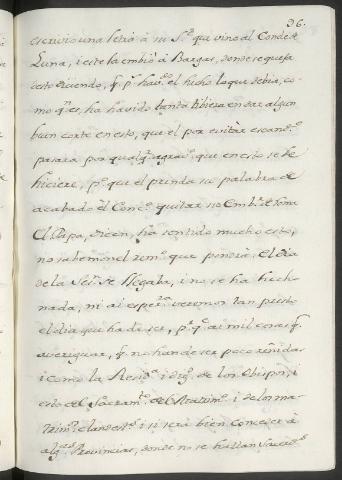 96.
escrivio una letra à mi S.r que vino al Conde de
Luna, i este la embiò à Bargas, donde se quexa
desto diciendo, q. p.r haver el hecho lo que debia, co-
mo q.es, ha havido tanta tibieza en dar algun
buen corte en esto, que el por evitàr escand.o
pasara por qualq.r agrav.o que en esto se le
hiciere, p.o que el prenda su palabra de
acabado el Conc.o quitar se Emb.r de Roma
El Papa, dicen, ha sentido mucho esto,
no sabemos el rem.o que pondrà. El dia
de la Ses.n se llegaba, i no se ha hecho
nada, ni ai esper.a veremos tan presto
el dia que ha de ser, p.r q.e ai mil cosas q.
averiguar, q. no han de ser poco reñidas
i como la Resid.a i dig.d de los Obispos, i
esto del Sacram.to del Matrim.o i de los ma-
trim.s clandest.s i si serà bien conceder à
alg.as Provincias, donde no se hallan Sacerd.s